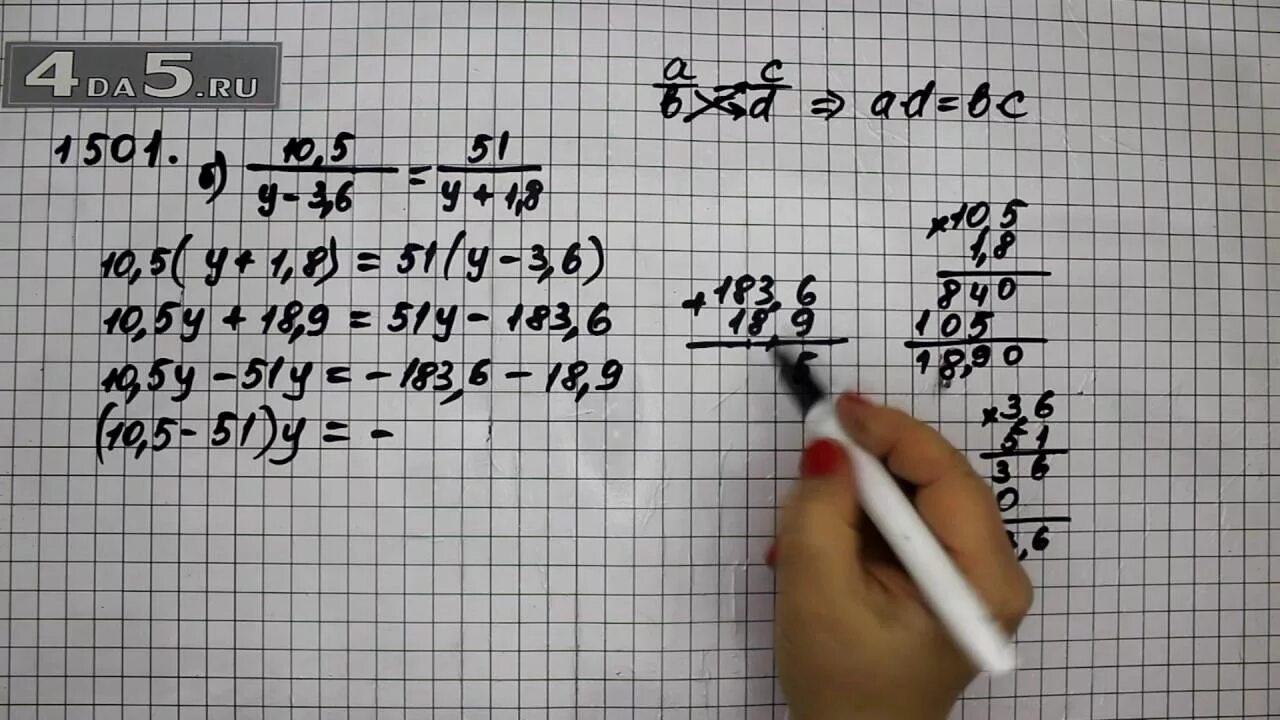 4DA5.RU
a/b = c/d ⇒ a·d = b·c
1501. б) 10,5/(y - 3,6) = 51/(y + 1,8)
10,5(y + 1,8) = 51(y - 3,6)
10,5y + 18,9 = 51y - 183,6
10,5y - 51y = -183,6 - 18,9
(10,5 - 51)y = -
+183,6
18,9
,5
×10,5
1,8
840
105
18,90
×3,6
51
36
0
,6